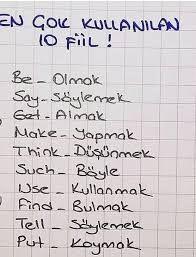 EN ÇOK KULLANILAN
10 FİİL !
Be - Olmak
Say - Söylemek
Get - Almak
Make - Yapmak
Think - Düşünmek
Such - Böyle
Use - Kullanmak
Find - Bulmak
Tell - Söylemek
Put - Koymak